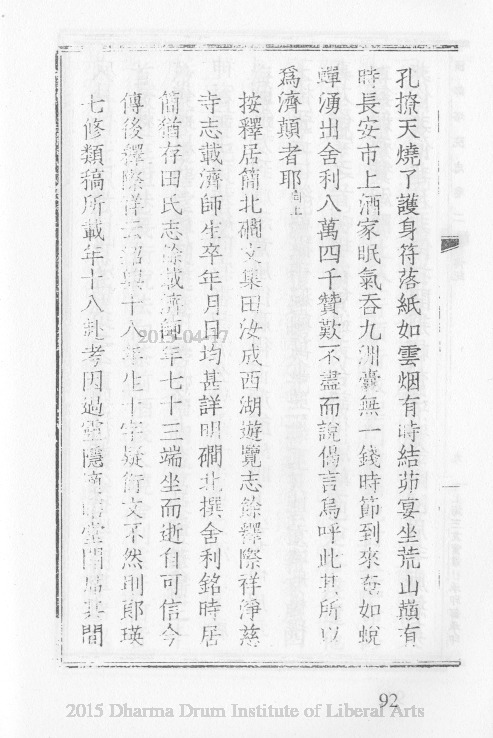 孔撩天燒了護身符落紙如雲烟有時結茆宴坐荒山顛有
時長安市上酒家眠氣吞九洲囊無一錢時節到來奄如蛻
蟬湧出舍利八萬四千贊歎不盡而說偈言嗚呼此其所以
爲濟顛者耶同上
按釋居簡北磵文集田汝成西湖遊覽志餘釋際祥淨慈
寺志載濟師生卒年月日均甚詳明磵北撰舍利銘時居
簡猶存田氏志餘載濟師年七十三端坐而逝自可信今
傳後釋際祥云紹興十八年生十字疑衍文不然則郎瑛
七修類稿所載年十八赴考因過靈隱 堂 其間
2015-04-17
92
2015 Dharma Drum Institute of Liberal Arts